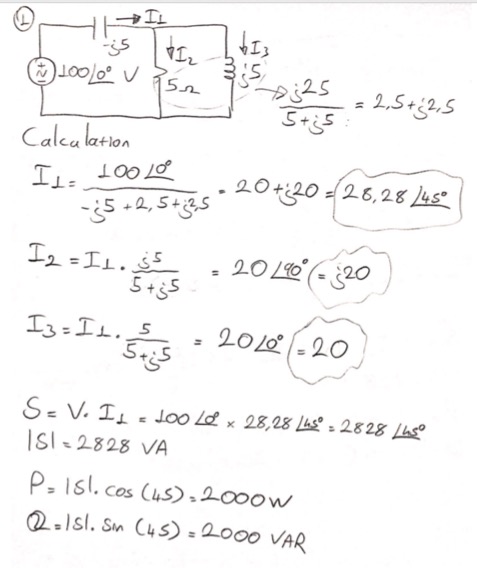 1
I1
-j5
I2
I3
100∠0° V
5Ω
j5
j25 / 5+j5 = 2,5+j2,5
Calculation
I1 = 100∠0° / -j5+2,5+j2,5 = 20+j20 = 28,28∠45°
I2 = I1 . j5 / 5+j5 = 20∠90° = j20
I3 = I1 . 5 / 5+j5 = 20∠0° = 20
S = V. I1 = 100∠0° x 28,28∠45° = 2828∠45°
|S| = 2828 VA
P = |S|. cos (45) = 2000W
Q = |S|. sin (45) = 2000 VAR